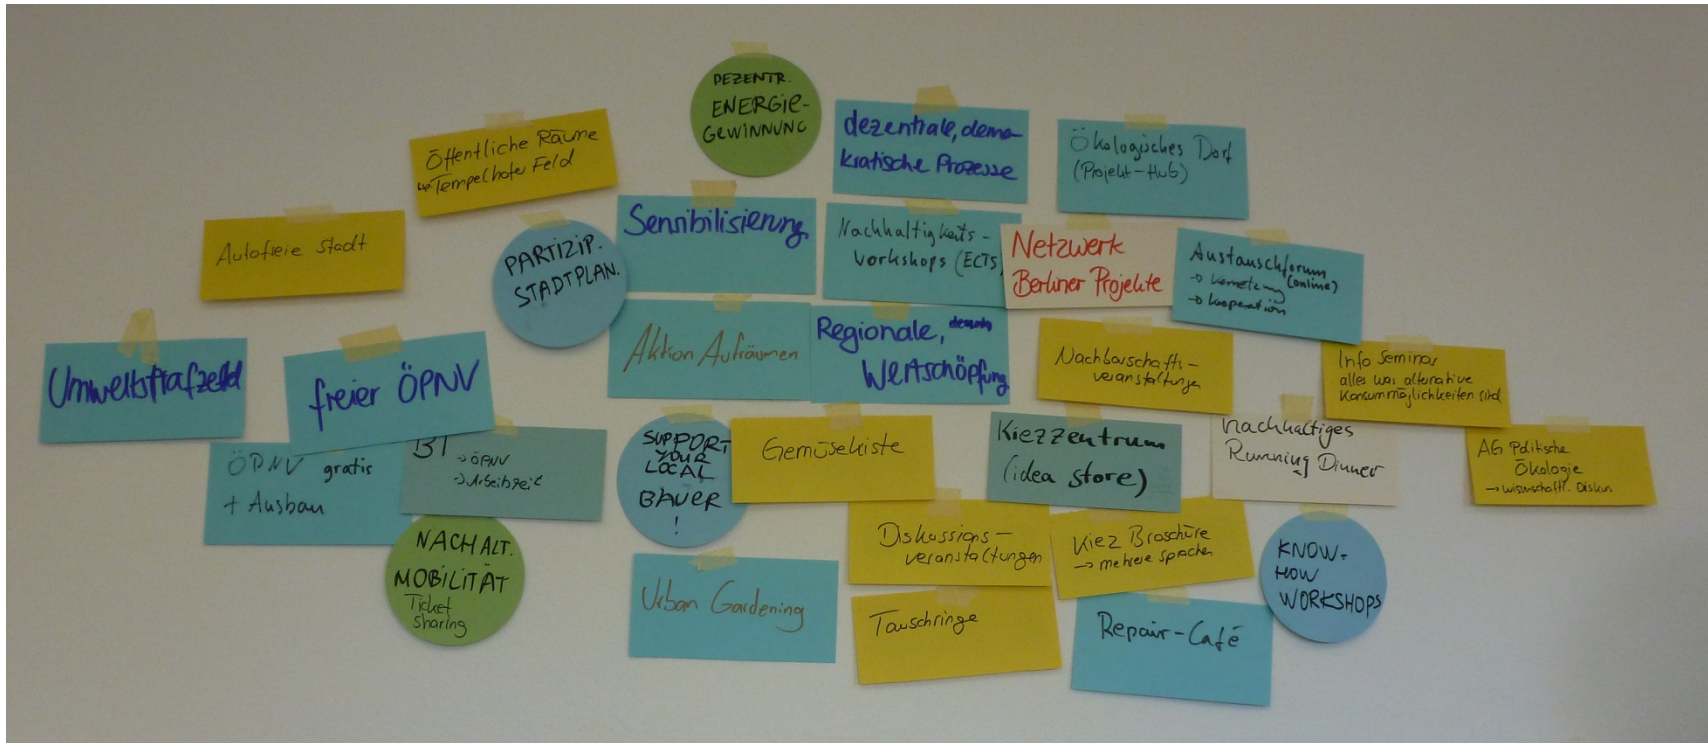 DEZENTR.
ENERGIE-
GEWINNUNG
Öffentliche Räume
↳ Tempelhofer Feld
dezentrale, demo-
kratische Prozesse
Ökologisches Dorf
(Projekt-Hub)
Autofreie Stadt
PARTIZIP.
STADTPLAN.
Sensibilisierung
Nachhaltigkeits-
workshops (ECTS)
Netzwerk
Berliner Projekte
Austauschforum
(online)
→ Vernetzung
→ Kooperation
Umweltstrafzettel
freier ÖPNV
Aktion Aufräumen
Regionale,
Wertschöpfung
Nachbarschafts-
veranstaltungen
Info Seminar
alles was alternative
Konsummöglichkeiten sind
ÖPNV gratis
+ Ausbau
→ ÖPNV
→ Arbeitszeit
SUPPORT
YOUR
LOCAL
BAUER
!
Gemüsekiste
Kiezzentrum
(idea store)
nachhaltiges
Running Dinner
AG Politische
Ökologie
→ wissenschaftl. Diskurs
NACHALT.
MOBILITÄT
Ticket
sharing
Urban Gardening
Diskussions-
veranstaltungen
Kiez Broschüre
→ mehrere sprachen
KNOW-
HOW
WORKSHOPS
Tauschringe
Repair-Café